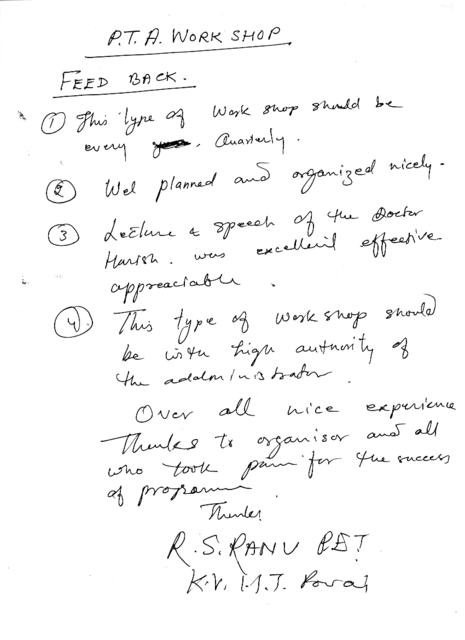 P.T.A. WORK SHOP
FEED BACK.
① This type of work shop should be
every , Quarterly.
② Wel planned and organized nicely.
③ Lecture & speech of the Doctor
Harish. was excellent effective
appreaciable.
④. This type of work shop should
be with high authority of
the addministrator.
Over all nice experience
Thanks to organisor and all
who took pain for the success
of programme
Thanks
R.S. RANU PET
K.V. I.I.T. Powai